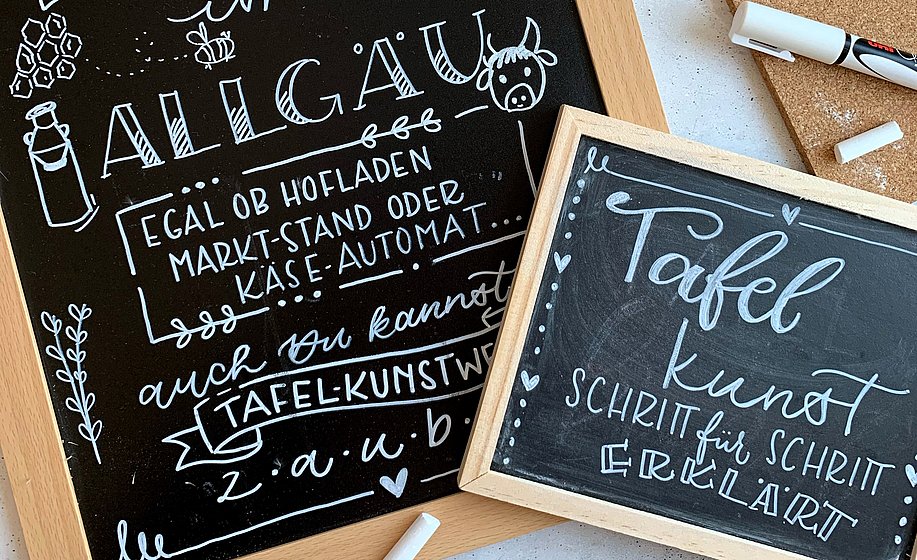 im
ALLGÄU
EGAL OB HOFLADEN
MARKT-STAND ODER
KÄSE-AUTOMAT...
auch Du kannst
TAFEL-KUNSTWE
z.a.u.b.
Tafel
kunst
SCHRITT für SCHRITT
ERKLÄRT
uni